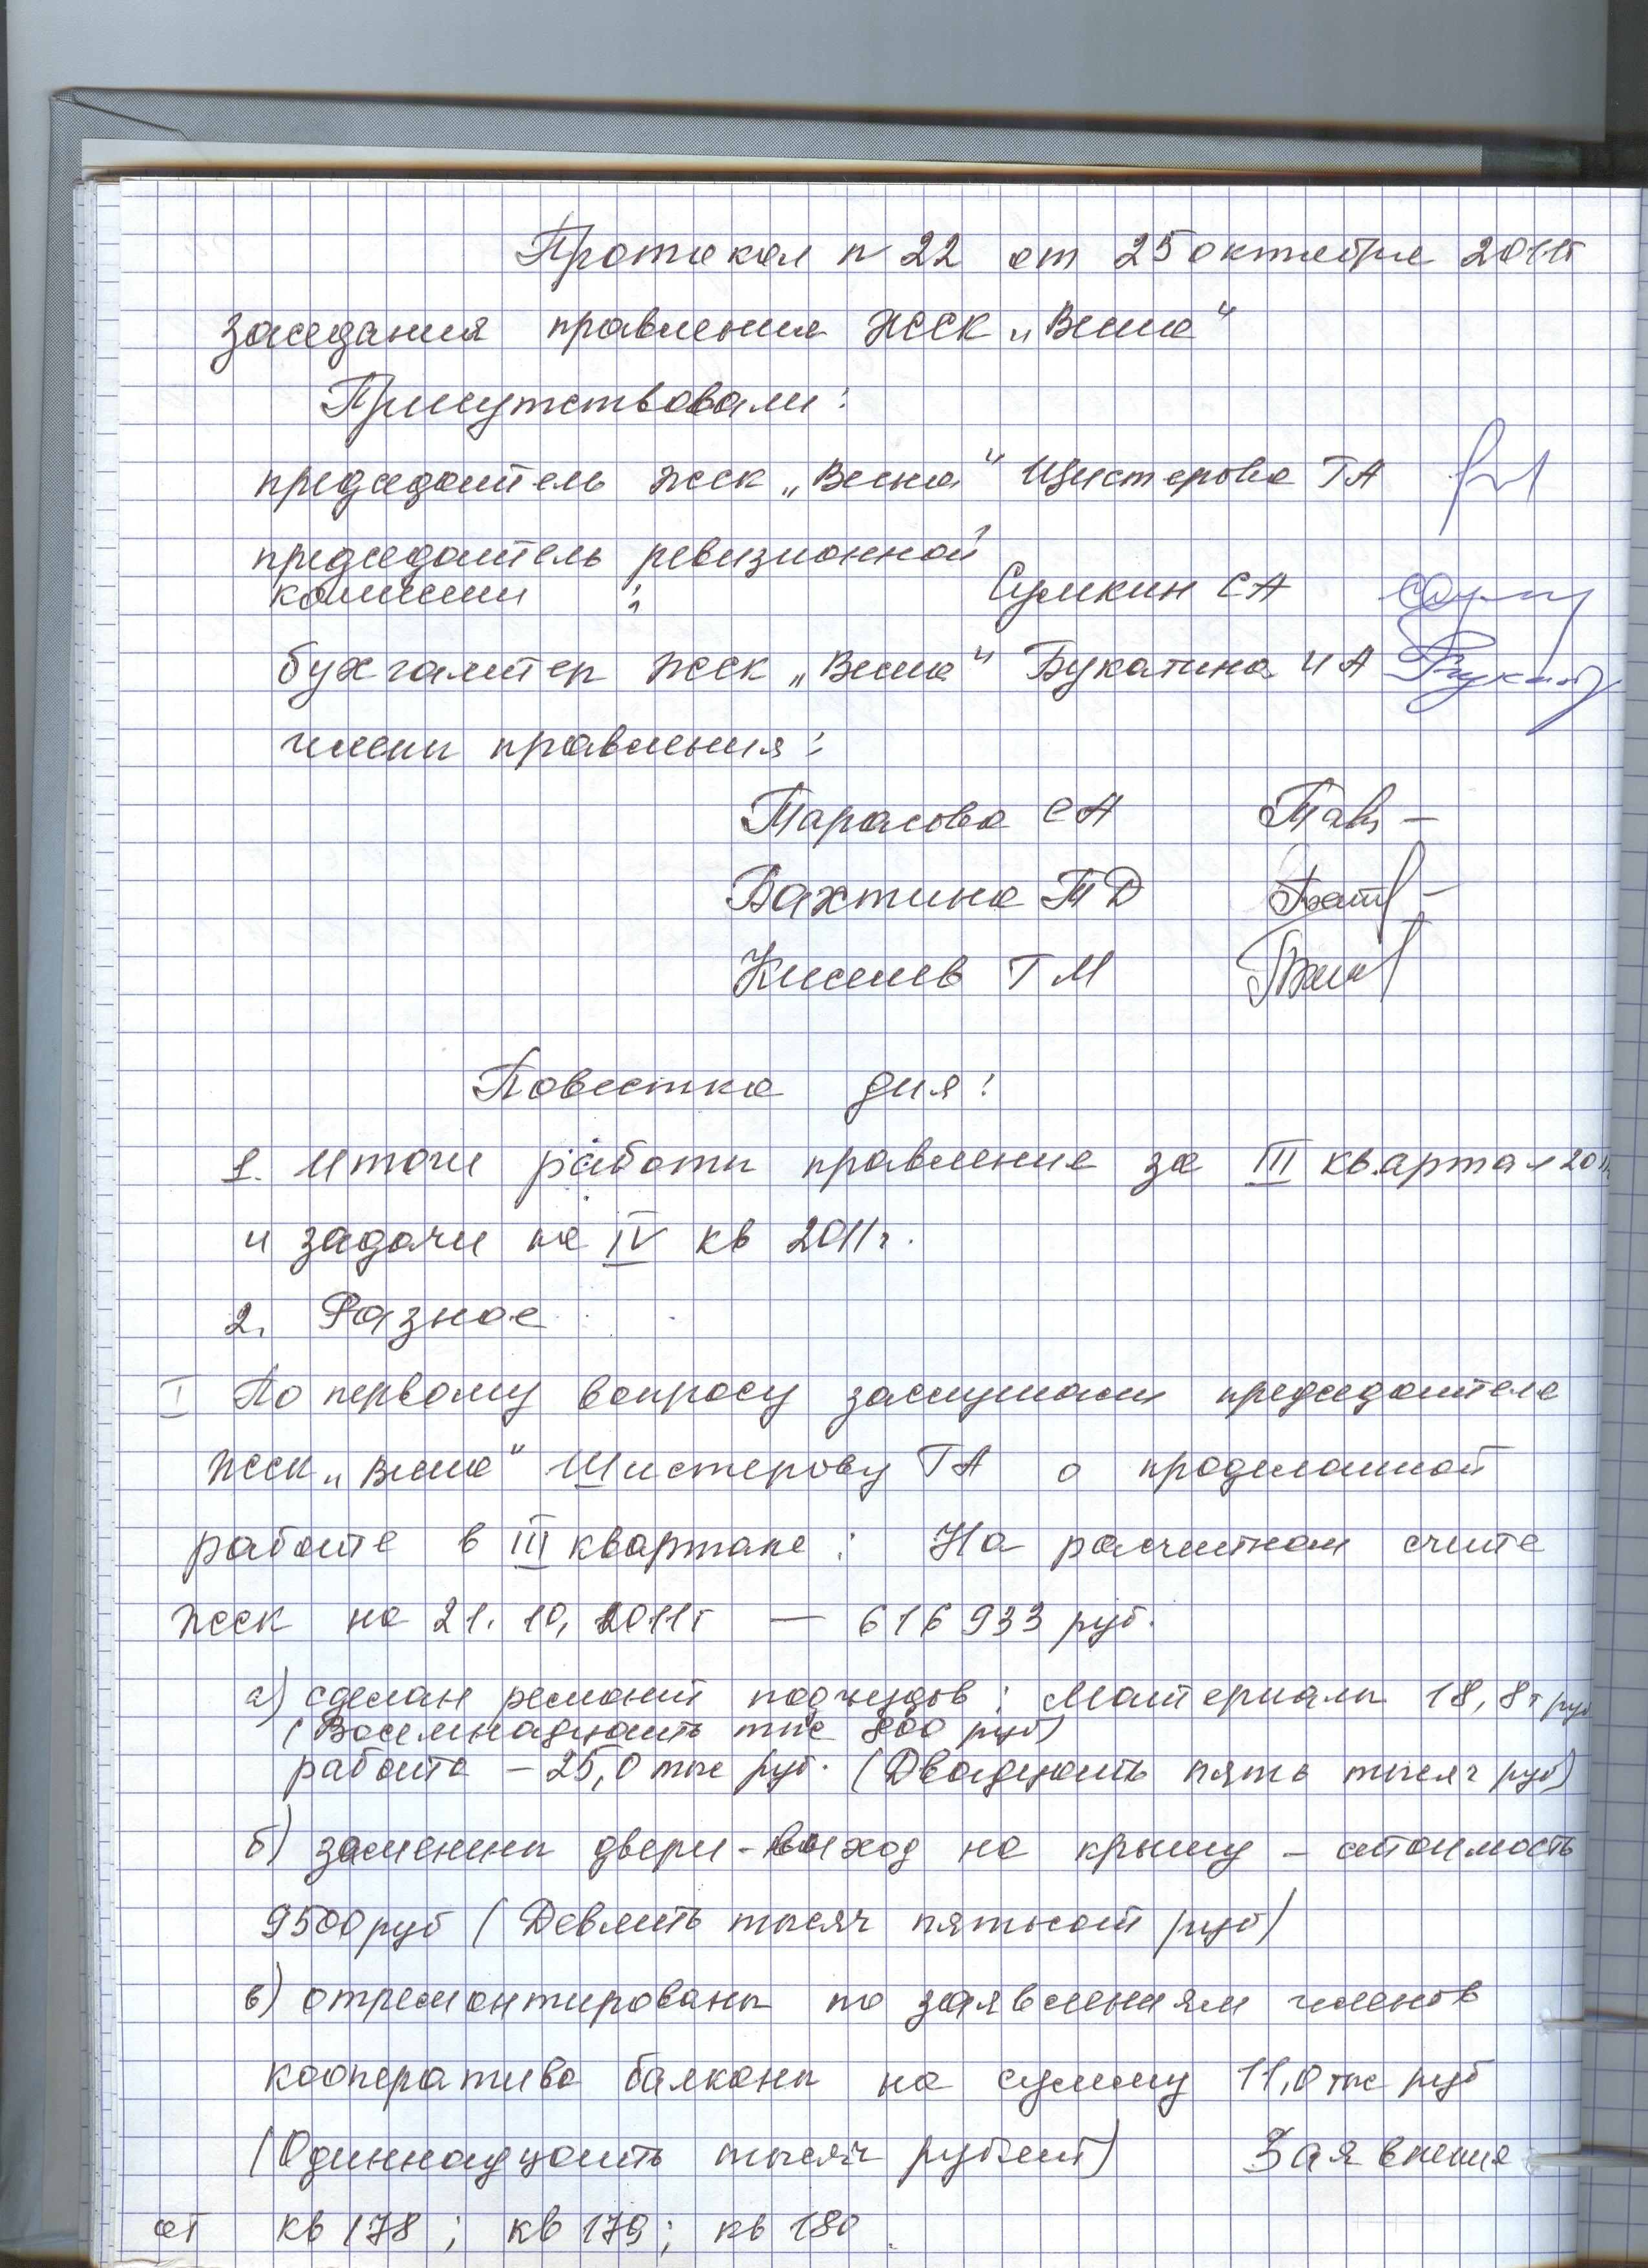 Протокол N 22 от 25 октября 2011г
заседания правления ЖСК „Весна"
Присутствовали:
председатель ЖСК „Весна" Шистерова ТА
председатель ревизионной
комиссии :
Сумкин СА
бухгалтер ЖСК „Весна" Букатина ИА
члены правления:
Тарасова СА
Бахтина ТД
Киселев ГМ
Повестка дня:
1. Итоги работы правления за III квартал 2011
и задачи на IV кв 2011г.
2. Разное
I По первому вопросу заслушали председателя
ЖСК „Весна" Шистерову ТА о проделанной
работе в III квартале: На расчетном счете
ЖСК на 21.10.2011г — 616 933 руб.
а) сделан ремонт подъездов: Материалы 18,8 т руб
(Восемнадцать тыс 800 руб)
работа – 25,0 тыс руб. (Двадцать пять тысяч руб)
б) заменены двери-выход на крышу – стоимость
9500 руб (Девять тысяч пятьсот руб)
в) отремонтированы по заявлениям членов
кооператива балконы на сумму 11,0 тыс руб
(Одиннадцать тысяч рублей) Заявления
от кв 178; кв 179; кв 180